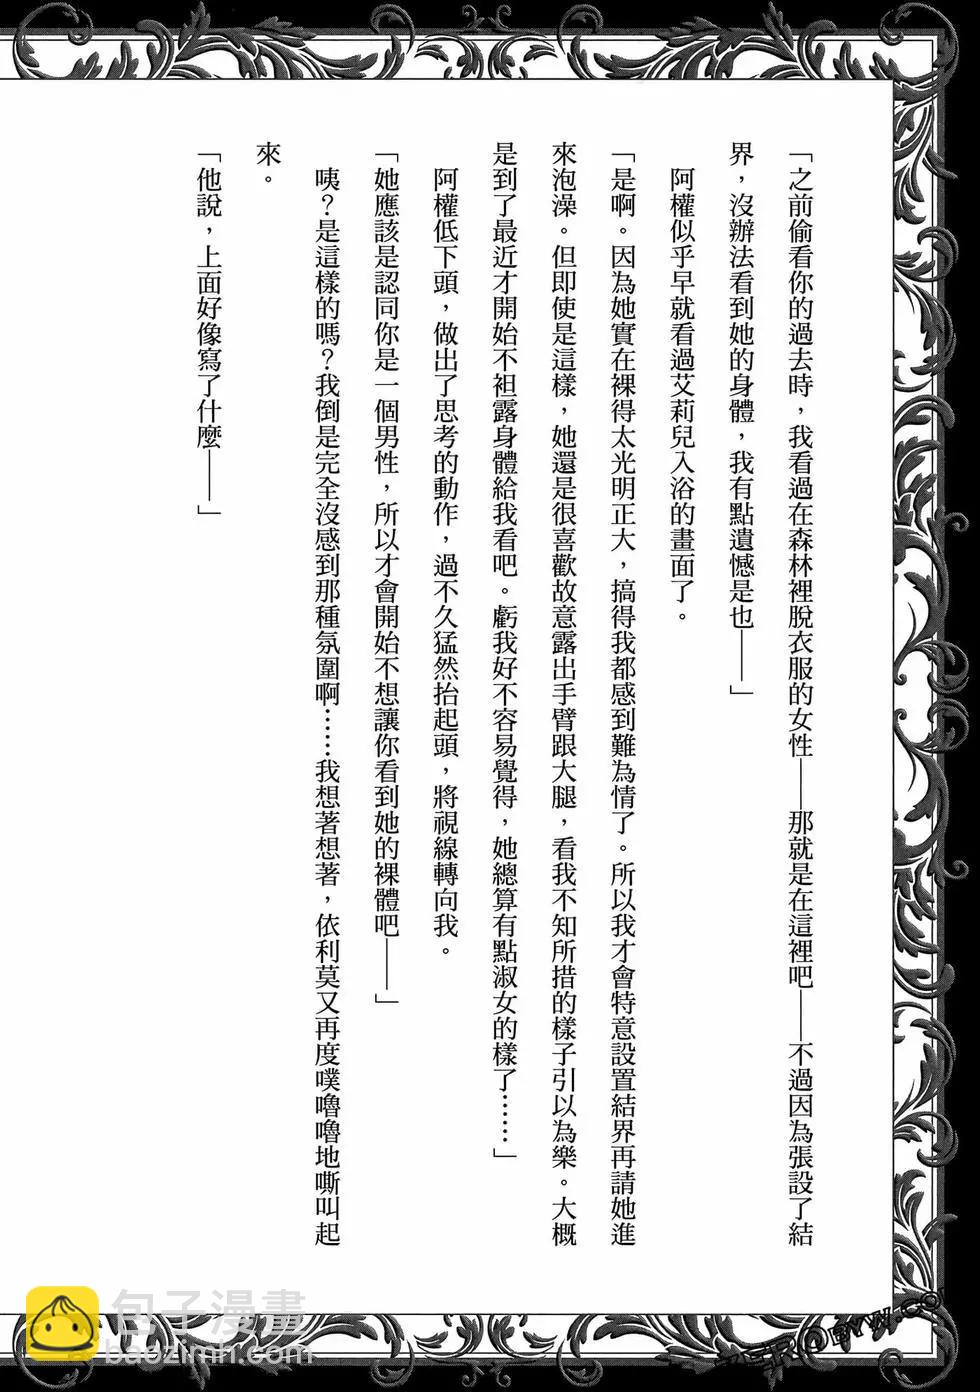 「之前偷看你的過去時，我看過在森林裡脫衣服的女性——那就是在這裡吧——不過因為張設了結
界，沒辦法看到她的身體，我有點遺憾是也——」
阿權似乎早就看過艾莉兒入浴的畫面了。
「是啊。因為她實在裸得太光明正大，搞得我都感到難為情了。所以我才會特意設置結界再請她進
來泡澡。但即使是這樣，她還是很喜歡故意露出手臂跟大腿，看我不知所措的樣子引以為樂。大概
是到了最近才開始不袒露身體給我看吧。虧我好不容易覺得，她總算有點淑女的樣了……」
阿權低下頭，做出了思考的動作，過不久猛然抬起頭，將視線轉向我。
「她應該是認同你是一個男性，所以才會開始不想讓你看到她的裸體吧——」
咦？是這樣的嗎？我倒是完全沒感到那種氛圍啊……我想著想著，依利莫又再度噗嚕嚕地嘶叫起
來。
「他說，上面好像寫了什麼——」
包子漫畫
baozimh.com
ZEROBYW.CO